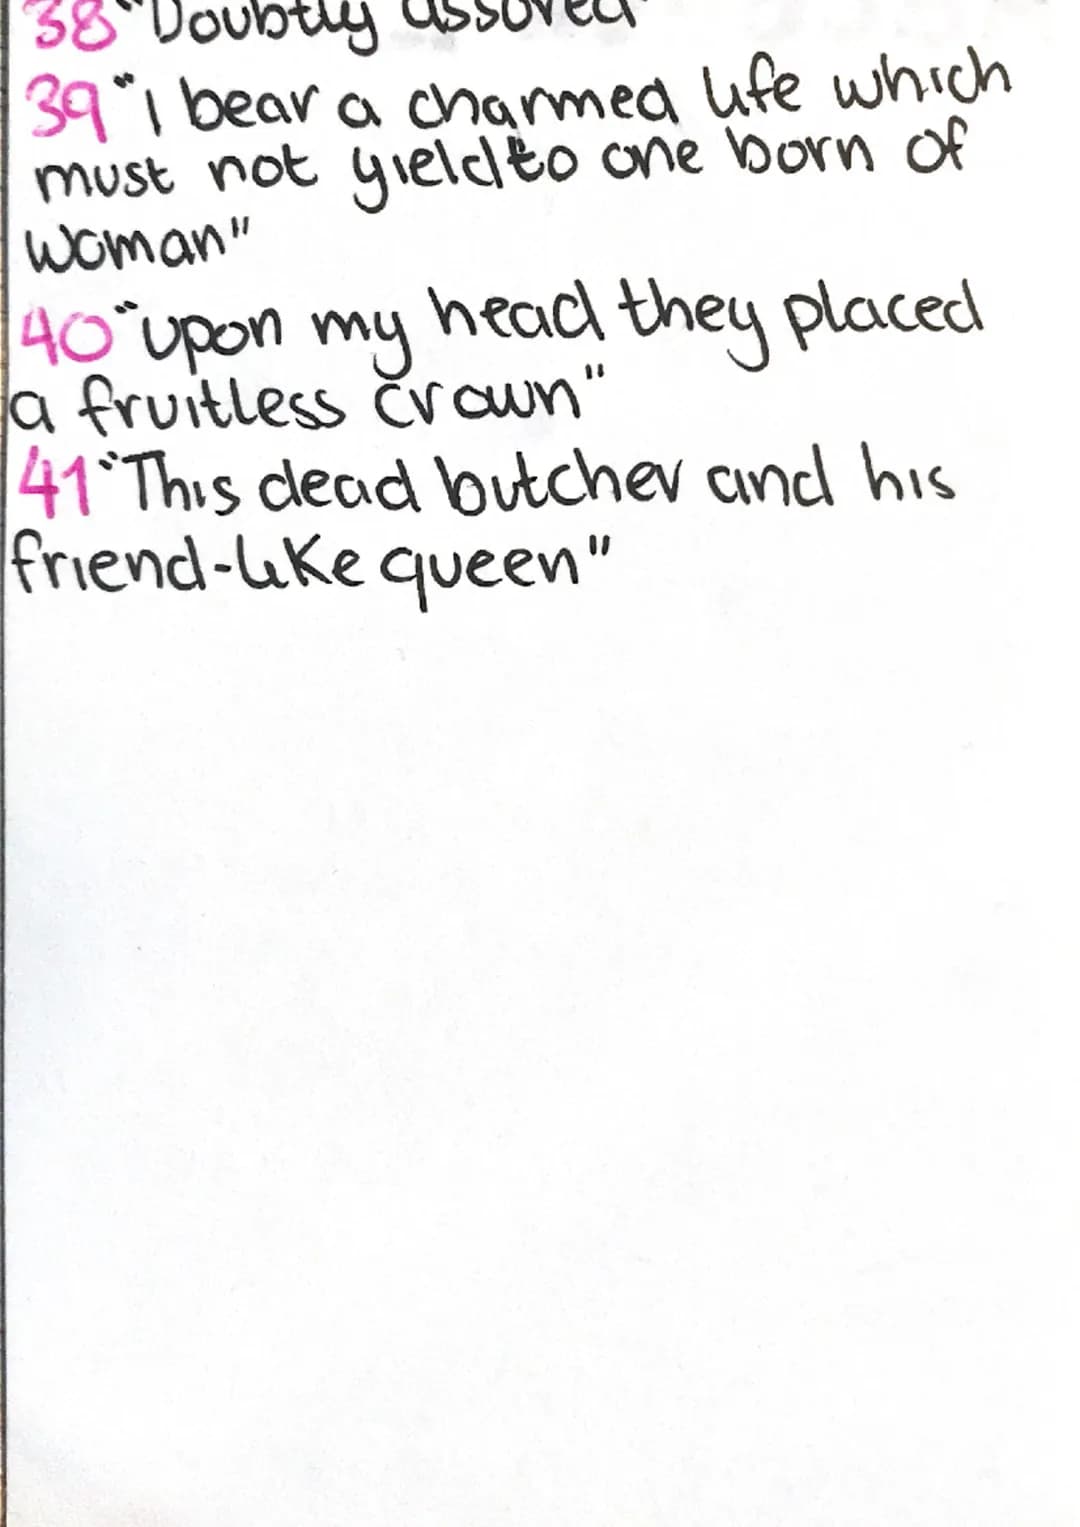 38 "Doubtly assured
39 "I bear a charmed life which
must not yield to one born of
woman"
40 "upon my head they placed
a fruitless crown"
41 "This dead butcher and his
friend-like queen"